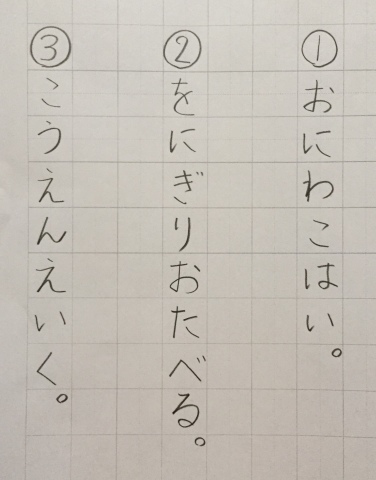 ①おにわこはい。
②をにぎりおたべる。
③こうえんえいく。